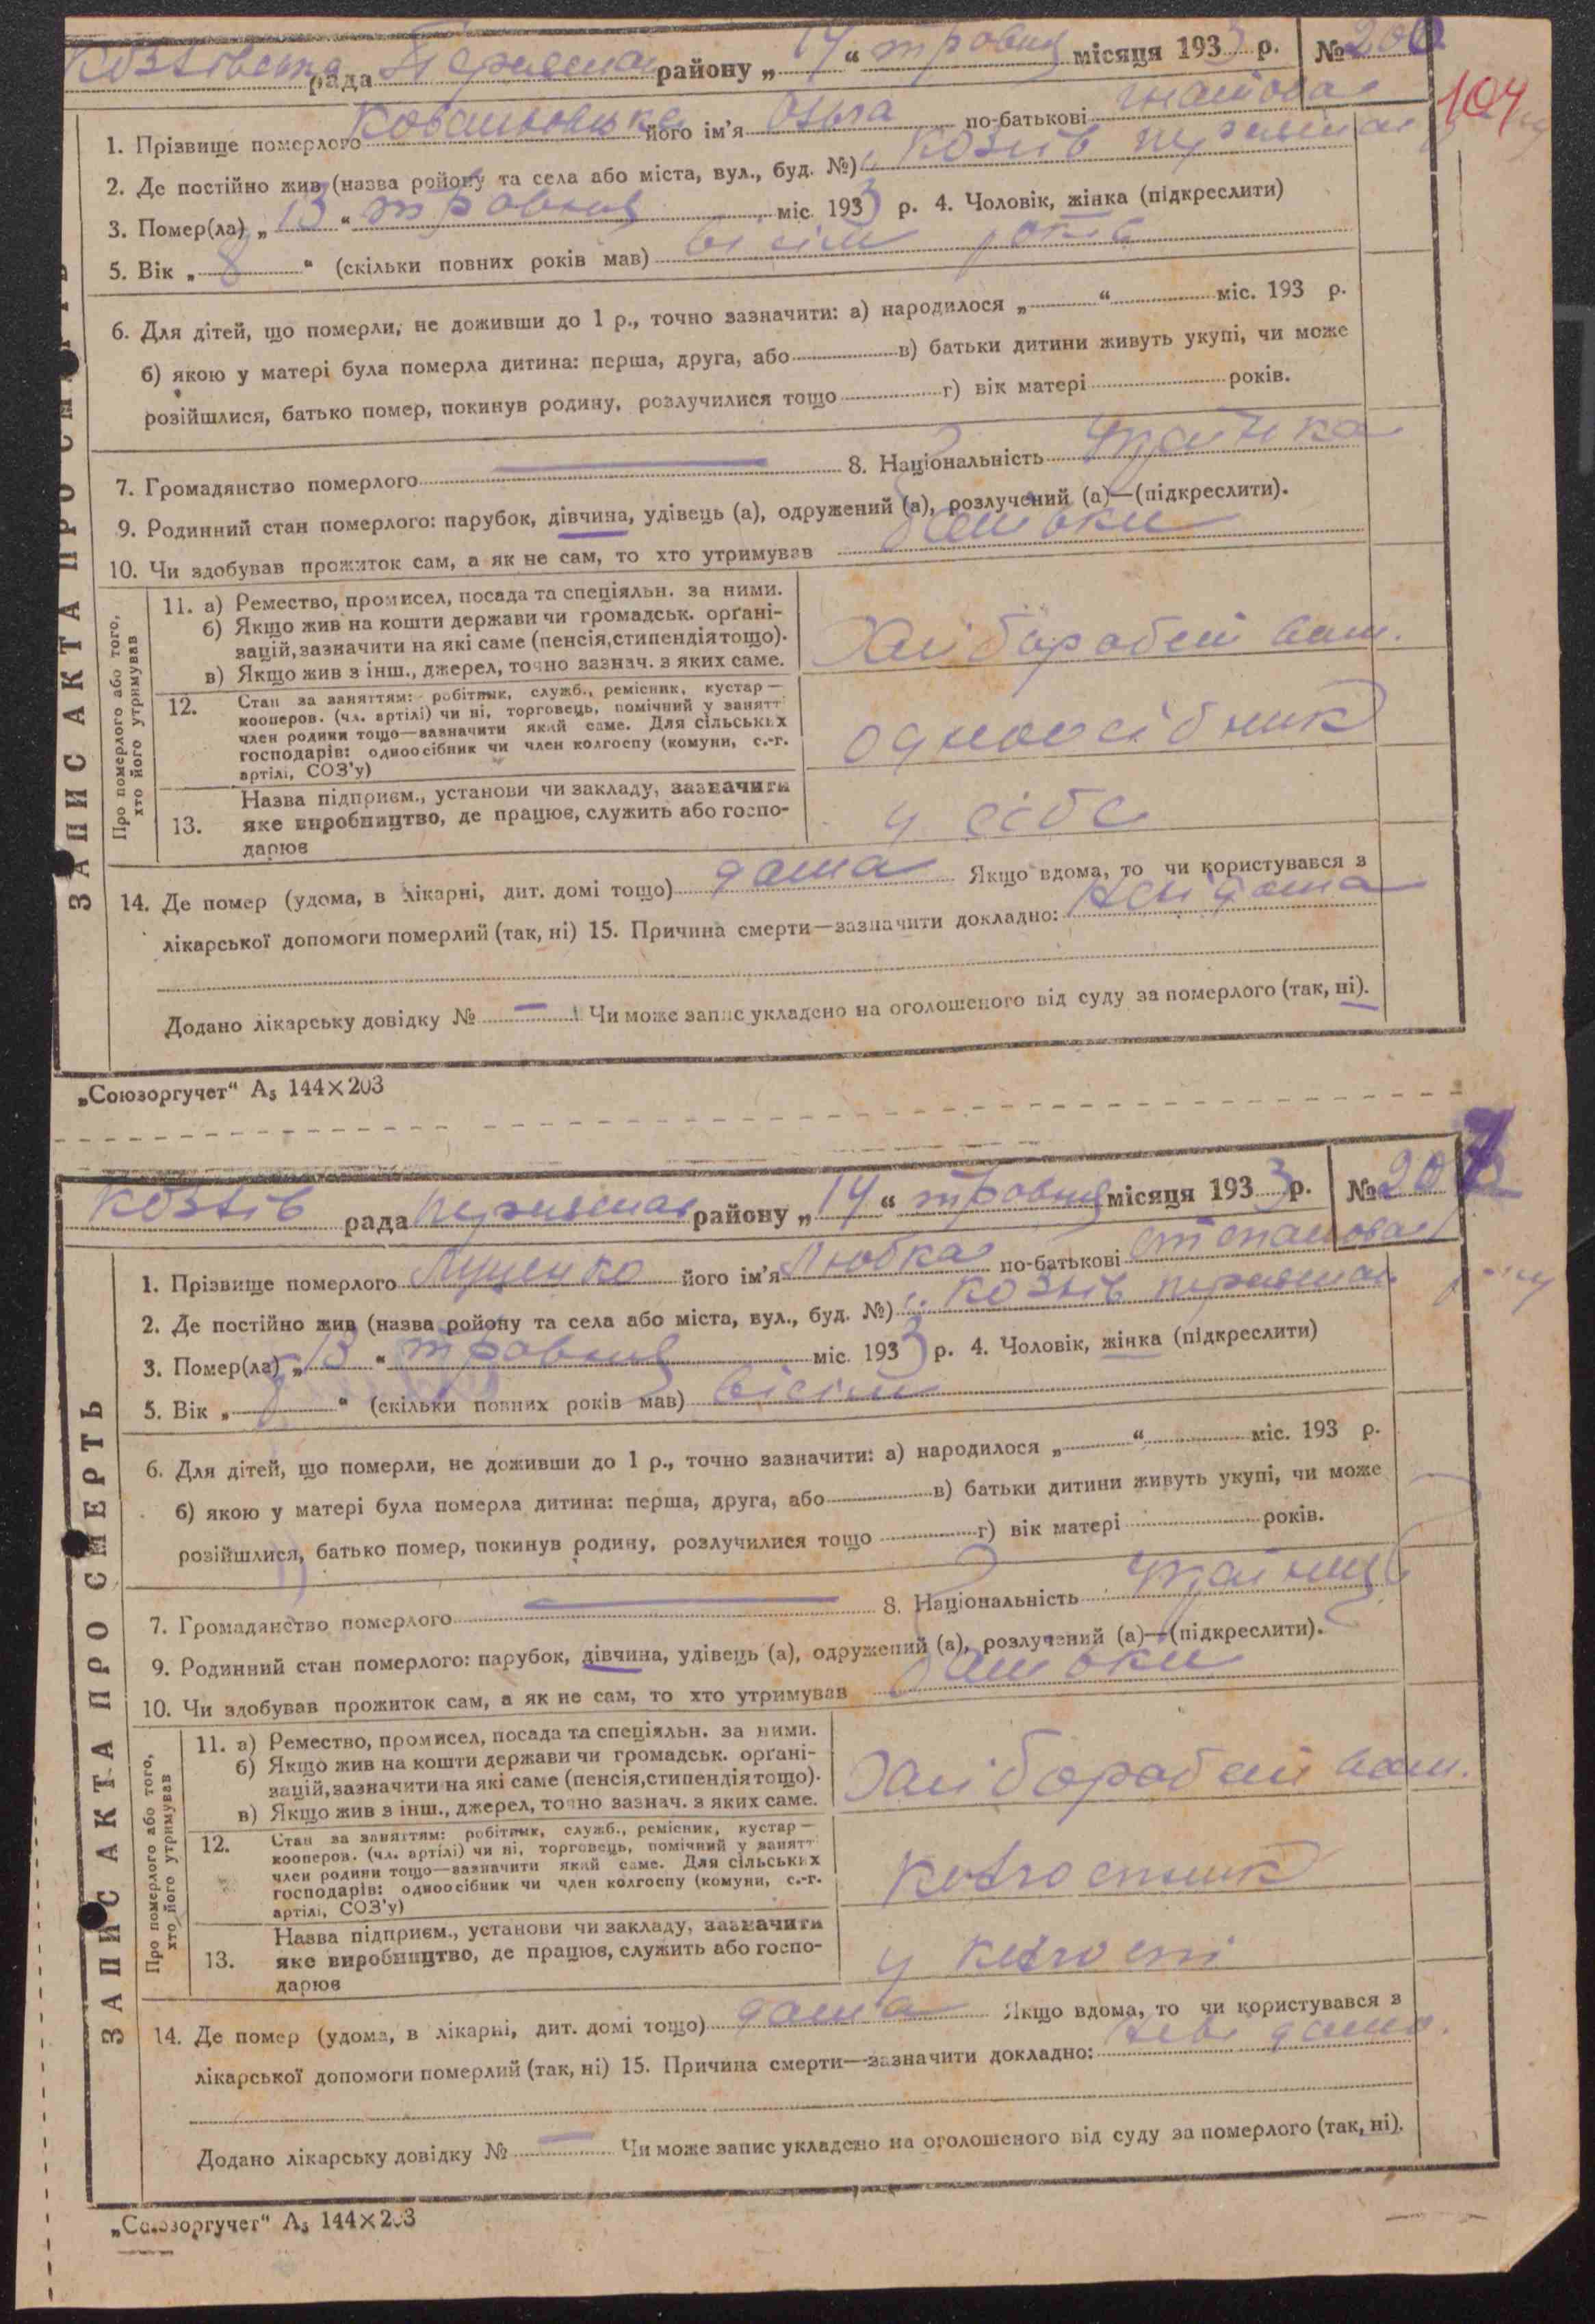 Козлівська рада Переяслав району „ 14 “ травня місяця 1933 р. № 200
104
1. Прізвище померлого його ім’я Ольга по-батькові
2. Де постійно жив (назва району та села або міста, вул., буд. №) с. Козлів
3. Помер(ла) „ 13 “ травня міс. 1933 р. 4. Чоловік, жінка (підкреслити)
5. Вік „ 8 “ (скільки повних років мав) вісім років
6. Для дітей, що померли, не доживши до 1 р., точно зазначити: а) народилося „ “ міс. 193 р.
б) якою у матері була померла дитина: перша, друга, або в) батьки дитини живуть укупі, чи може
розійшлися, батько помер, покинув родину, розлучилися тощо г) вік матері років.
7. Громадянство померлого — 8. Національність Українка
9. Родинний стан померлого: парубок, дівчина, удівець (а), одружений (а), розлучений (а)—(підкреслити).
10. Чи здобував прожиток сам, а як не сам, то хто утримував батьки
ЗАПИС АКТА ПРО СМЕРТЬ
Про померлого або того, хто його утримував
11. а) Ремество, промисел, посада та спеціяльн. за ними.
б) Якщо жив на кошти держави чи громадськ. орґані-
зацій, зазначити на які саме (пенсія, стипендія тощо).
в) Якщо жив з інш., джерел, точно зазнач. з яких саме.
Хліборобст вом.
12. Стан за заняттям: робітник, служб., ремісник, кустар—
кооперов. (чл. артілі) чи ні, торговець, помічний у занятт
член родини тощо—зазначити який саме. Для сільських
господарів: одноосібник чи член колгоспу (комуни, с.-г.
артілі, СОЗ’у)
одноосібник
13. Назва підприєм., установи чи закладу, зазначити
яке виробництво, де працює, служить або госпо-
дарює
у сібе
14. Де помер (удома, в лікарні, дит. домі тощо) дома Якщо вдома, то чи користувався з
лікарської допомоги померлий (так, ні) 15. Причина смерти—зазначити докладно:
Додано лікарську довідку № — Чи може запис укладено на оголошеного від суду за померлого (так, ні).
„Союзоргучет“ А₅ 144×203
Козлів рада Переяслав району „ 14 “ травня місяця 1933 р. №
1. Прізвище померлого Луценко його ім’я Любка по-батькові Степанова
2. Де постійно жив (назва району та села або міста, вул., буд. №) с. Козлів
3. Помер(ла) „ 13 “ травня міс. 1933 р. 4. Чоловік, жінка (підкреслити)
5. Вік „ 8 “ (скільки повних років мав) вісім
6. Для дітей, що померли, не доживши до 1 р., точно зазначити: а) народилося „ “ міс. 193 р.
б) якою у матері була померла дитина: перша, друга, або в) батьки дитини живуть укупі, чи може
розійшлися, батько помер, покинув родину, розлучилися тощо г) вік матері років.
7. Громадянство померлого — 8. Національність
9. Родинний стан померлого: парубок, дівчина, удівець (а), одружений (а), розлучений (а)—(підкреслити).
10. Чи здобував прожиток сам, а як не сам, то хто утримував батьки
ЗАПИС АКТА ПРО СМЕРТЬ
Про померлого або того, хто його утримував
11. а) Ремество, промисел, посада та спеціяльн. за ними.
б) Якщо жив на кошти держави чи громадськ. орґані-
зацій, зазначити на які саме (пенсія, стипендія тощо).
в) Якщо жив з інш., джерел, точно зазнач. з яких саме.
Хліборобст вом.
12. Стан за заняттям: робітник, служб., ремісник, кустар—
кооперов. (чл. артілі) чи ні, торговець, помічний у занятт
член родини тощо—зазначити який саме. Для сільських
господарів: одноосібник чи член колгоспу (комуни, с.-г.
артілі, СОЗ’у)
колгоспник
13. Назва підприєм., установи чи закладу, зазначити
яке виробництво, де працює, служить або госпо-
дарює
у колгоспі
14. Де помер (удома, в лікарні, дит. домі тощо) дома Якщо вдома, то чи користувався з
лікарської допомоги померлий (так, ні) 15. Причина смерти—зазначити докладно:
Додано лікарську довідку № — Чи може запис укладено на оголошеного від суду за померлого (так, ні).
„Союзоргучет“ А₅ 144×203